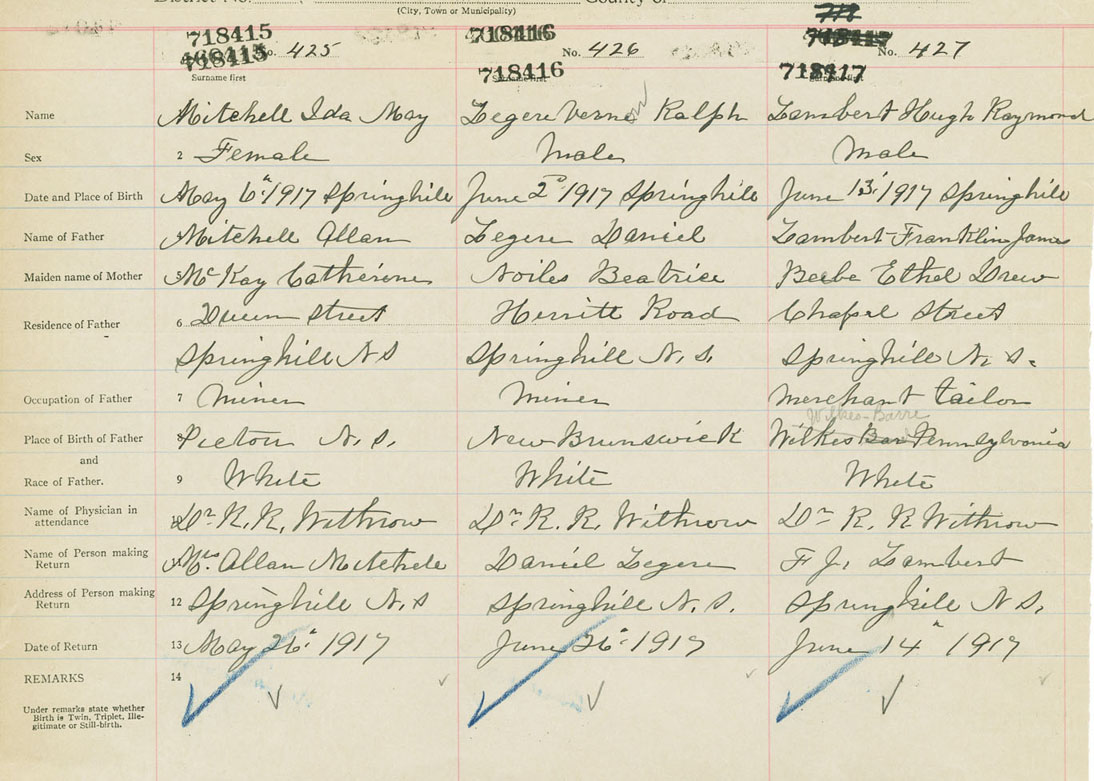 District No. County of
(City, Town or Municipality)
718415 No. 425 718416 No. 426 No. 427
718415 718416 718417
Surname first Surname first Surname first
Name Mitchell Ida May Legere Vernon Ralph Lambert Hugh Raymond
Sex 2 Female Male Male
Date and Place of Birth May 6" 1917 Springhill June 2d 1917 Springhill June 13" 1917 Springhill
Name of Father Mitchell Allan Legere Daniel Lambert Franklin James
Maiden name of Mother 5 McKay Catherine Noiles Beatrice Beebe Ethel Drew
Residence of Father 6 Queen Street Herritt Road Chapel Street
Springhill N S Springhill N. S. Springhill N. S.
Occupation of Father 7 Miner Miner Merchant tailor
Wilkes-Barre
Place of Birth of Father 8 Pictou N. S. New Brunswick Wilkes Bar Pennsylvania
and
Race of Father. 9 White White White
Name of Physician in attendance Dr. R. R. Withrow Dr. R. R. Withrow Dr R. R Withrow
Name of Person making Return Mrs. Allan Mitchell Daniel Legere F J. Lambert
Address of Person making Return 12 Springhill N. S Springhill N. S. Springhill N S.
Date of Return 13 May 26" 1917 June 26" 1917 June 14" 1917
REMARKS 14
Under remarks state whether
Birth is Twin, Triplet, Ille-
gitimate or Still-birth.